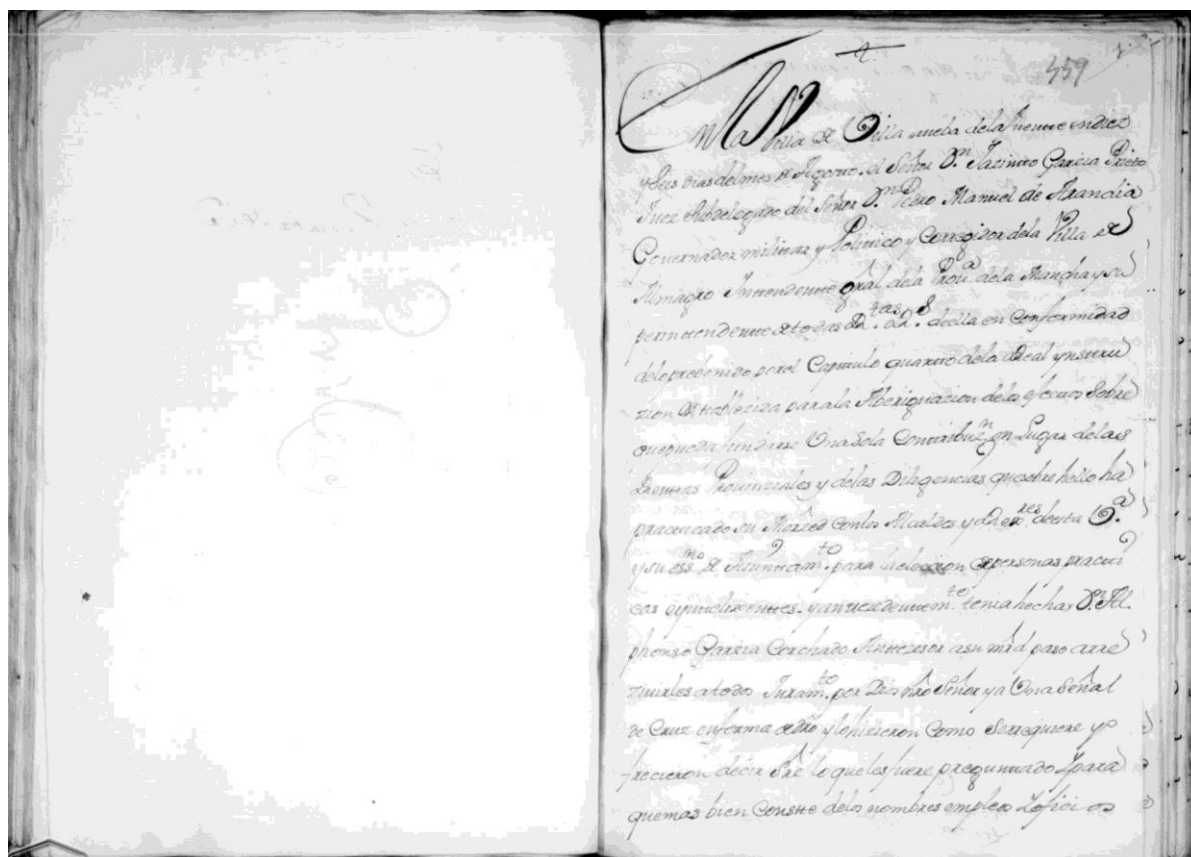 359
En la Villa de Villa nueba dela fuente en diez
y Seis dias del mes de Agosto. el Señor Dn. Jazinto Garzia Prieto
Juez Subdelegado del Señor Dn. Pedro Manuel de Arandia
Governador militar y Politico y Corregidor dela Villa de
Almagro Intendente gral. dela Prova. dela Mancha y su
perintendente de todas Rtas. Rs. de ella en Conformidad
delo prebenido porel Capitulo quarto dela Real ynstru
zion Establezida para la Aberiguazion delos efectos Sobre
que pueda fundarse Una Sola Contribuzn. en Lugar delas
Rentas Provinziales y delas Diligencias que sobre hello ha
practicado su Merced Conlos Alcaldes y Rexres. de esta Va.
y su essno. de Aiuntamto. para la eleczion de personas practi
cas e ynteligentes. y antezedentemte. tenia hechas Dn. Al
phonso Garzia Corchado Antezesor a su mrd paso a rre
zivirles a todos Juramto. por Dios nro Señor y a Una Señal
de Cruz en forma de dro y lo hizieron Como Se requiere y o
frecieron decir Sre lo que les fuere preguntado Y para
que mas bien Conste delos nombres empleos Y ofici os